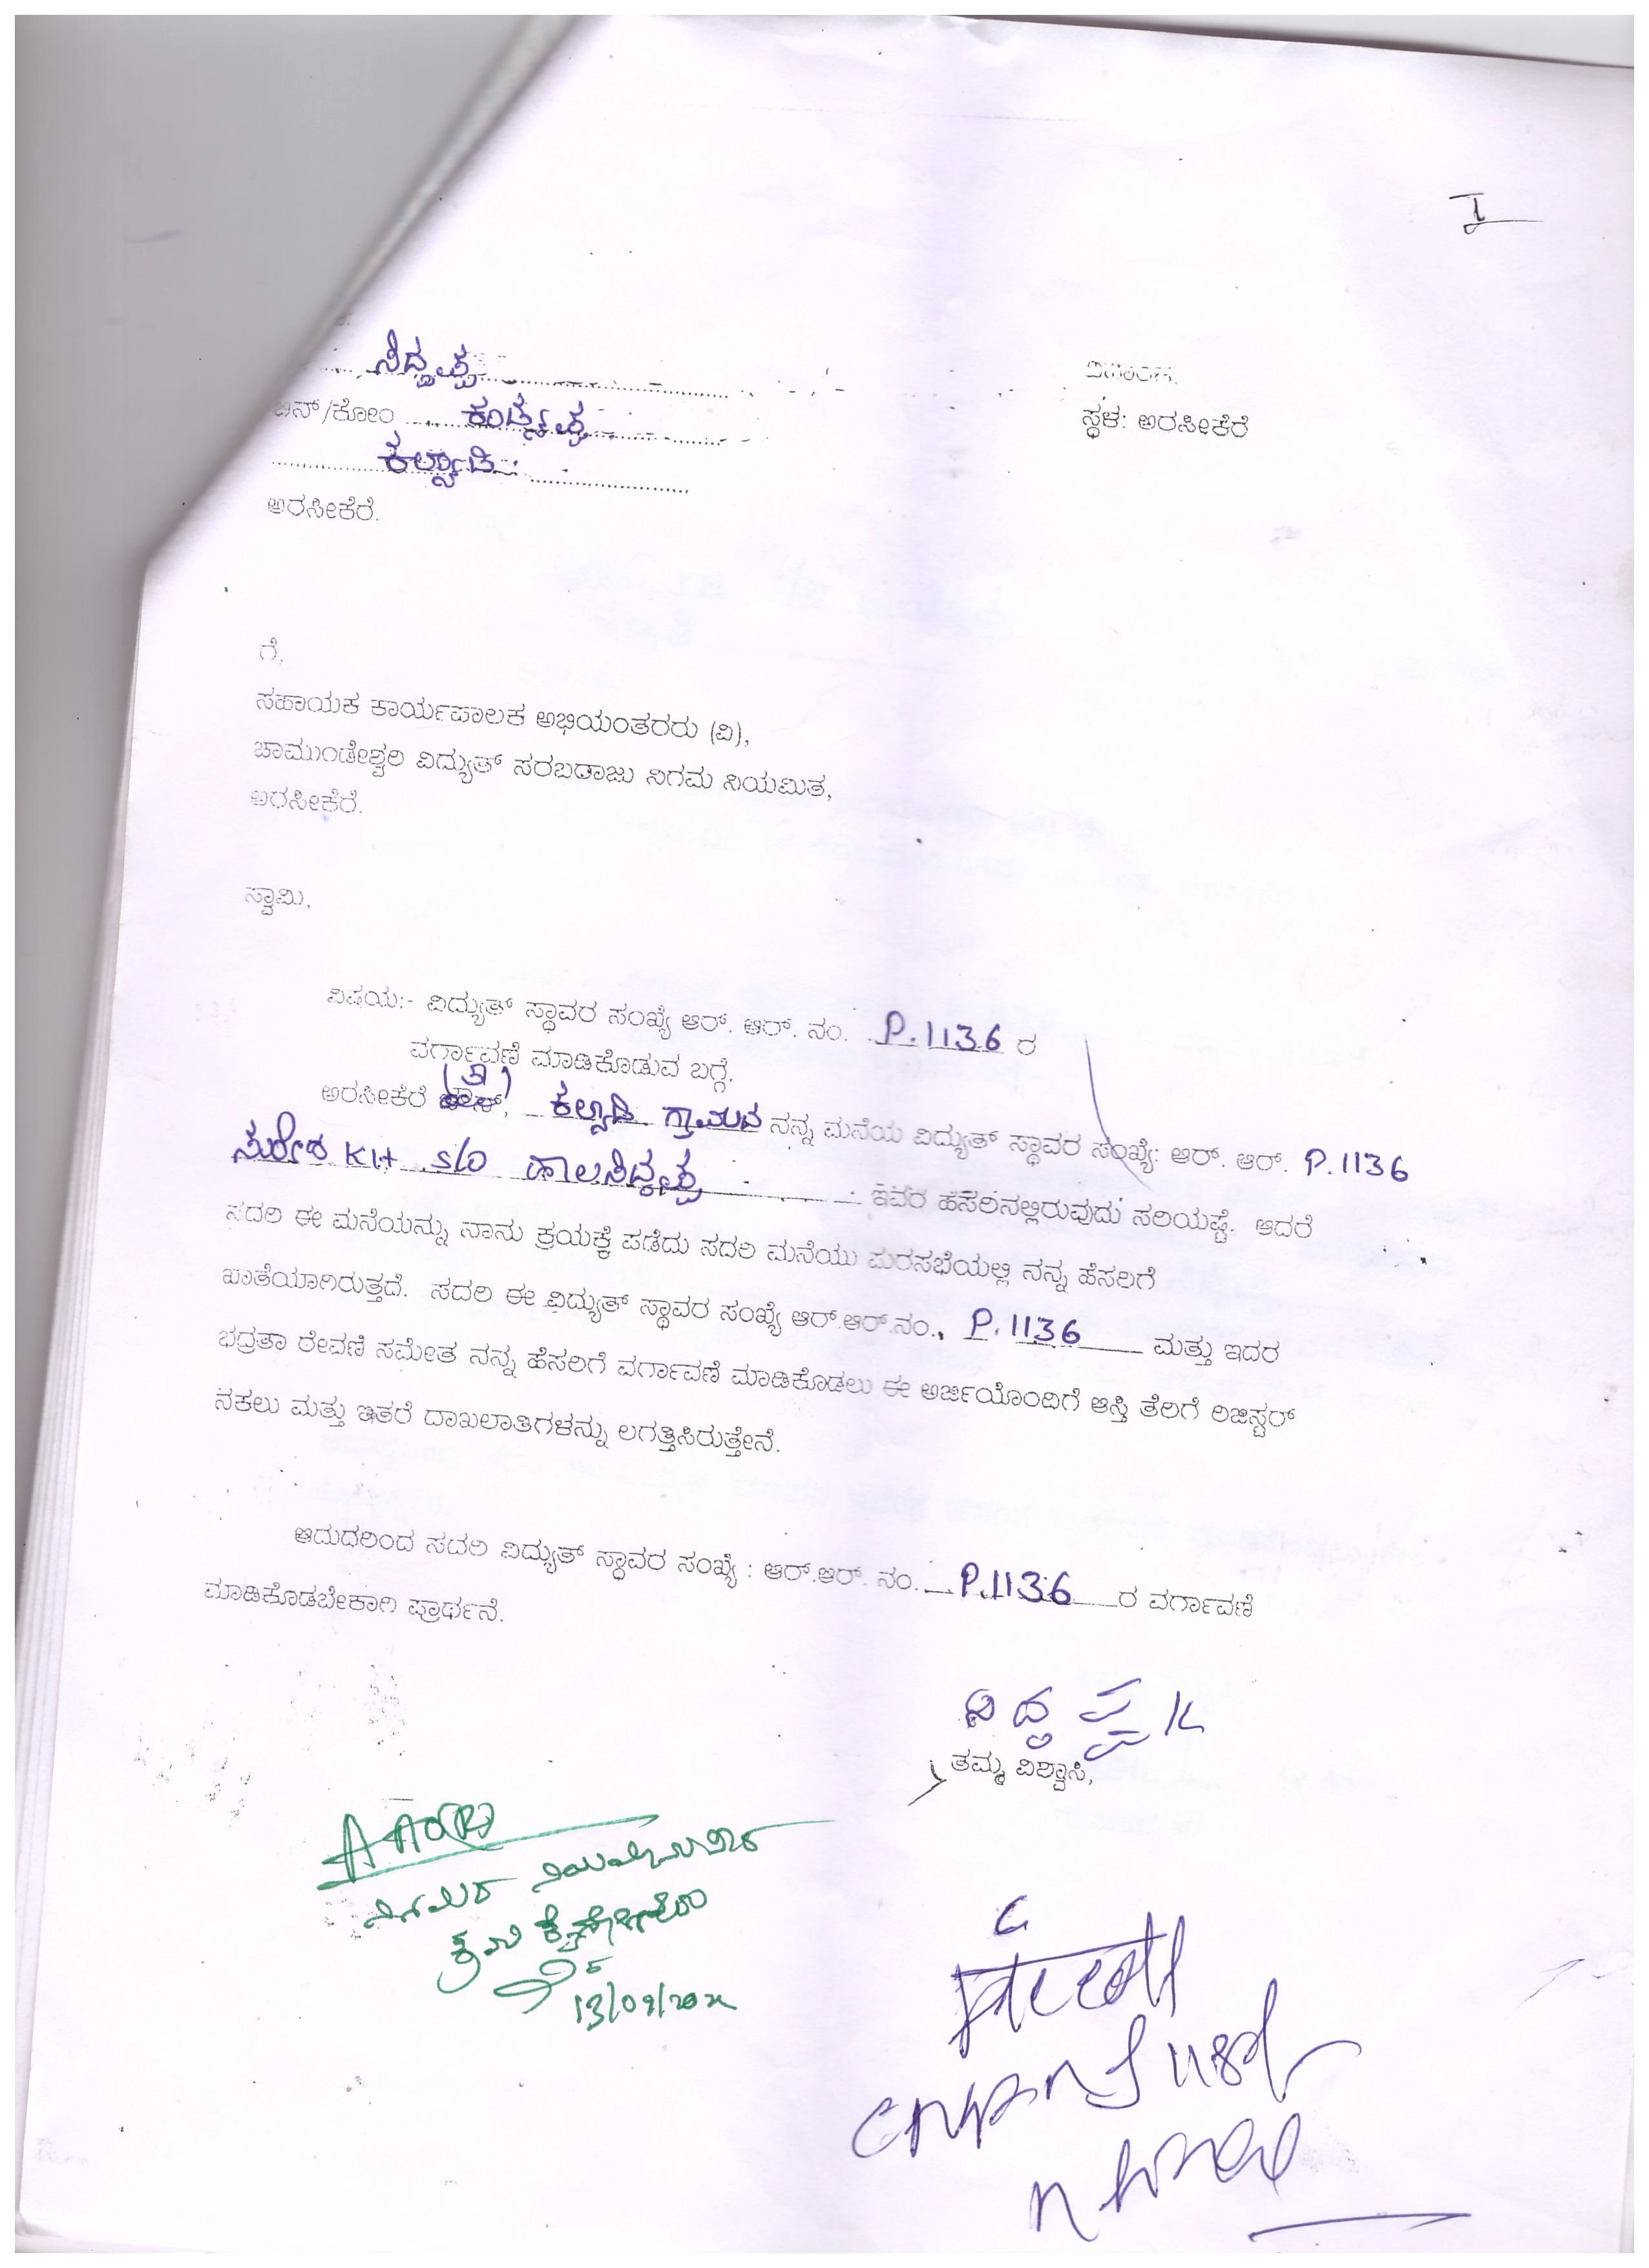 ಸಿದ್ದಪ್ಪ
ಬಿನ್/ಕೋಂ
ಕಲ್ಸಾಡಿ
ಸ್ಥಳ: ಅರಸೀಕೆರೆ
ಅರಸೀಕೆರೆ.
ಗೆ,
ಸಹಾಯಕ ಕಾರ್ಯಪಾಲಕ ಅಭಿಯಂತರರು (ವಿ),
ಚಾಮುಂಡೇಶ್ವರಿ ವಿದ್ಯುತ್ ಸರಬರಾಜು ನಿಗಮ ನಿಯಮಿತ,
ಅರಸೀಕೆರೆ.
ಸ್ವಾಮಿ,
ವಿಷಯ:- ವಿದ್ಯುತ್ ಸ್ಥಾವರ ಸಂಖ್ಯೆ ಆರ್. ಆರ್. ನಂ. P.1136 ರ
ವರ್ಗಾವಣೆ ಮಾಡಿಕೊಡುವ ಬಗ್ಗೆ.
ಅರಸೀಕೆರೆ ಕಲ್ಸಾಡಿ ಗ್ರಾಮದ ನನ್ನ ಮನೆಯ ವಿದ್ಯುತ್ ಸ್ಥಾವರ ಸಂಖ್ಯೆ: ಆರ್. ಆರ್. P.1136
ಸುರೇಶ KH S/O ಹಾಲಸಿದ್ದಪ್ಪ ಇವರ ಹೆಸರಿನಲ್ಲಿರುವುದು ಸರಿಯಷ್ಟೆ. ಆದರೆ
ಸದರಿ ಈ ಮನೆಯನ್ನು ನಾನು ಕ್ರಯಕ್ಕೆ ಪಡೆದು ಸದರಿ ಮನೆಯು ಪುರಸಭೆಯಲ್ಲಿ ನನ್ನ ಹೆಸರಿಗೆ
ಖಾತೆಯಾಗಿರುತ್ತದೆ. ಸದರಿ ಈ ವಿದ್ಯುತ್ ಸ್ಥಾವರ ಸಂಖ್ಯೆ ಆರ್.ಆರ್.ನಂ., P.1136 ಮತ್ತು ಇದರ
ಭದ್ರತಾ ಠೇವಣಿ ಸಮೇತ ನನ್ನ ಹೆಸರಿಗೆ ವರ್ಗಾವಣೆ ಮಾಡಿಕೊಡಲು ಈ ಅರ್ಜಿಯೊಂದಿಗೆ ಆಸ್ತಿ ತೆರಿಗೆ ರಿಜಿಸ್ಟರ್
ನಕಲು ಮತ್ತು ಇತರೆ ದಾಖಲಾತಿಗಳನ್ನು ಲಗತ್ತಿಸಿರುತ್ತೇನೆ.
ಆದುದರಿಂದ ಸದರಿ ವಿದ್ಯುತ್ ಸ್ಥಾವರ ಸಂಖ್ಯೆ : ಆರ್.ಆರ್. ನಂ. P.1136 ರ ವರ್ಗಾವಣೆ
ಮಾಡಿಕೊಡಬೇಕಾಗಿ ಪ್ರಾರ್ಥನೆ.
ಸಿದ್ದಪ್ಪ K
ತಮ್ಮ ವಿಶ್ವಾಸಿ,
AAO(R)